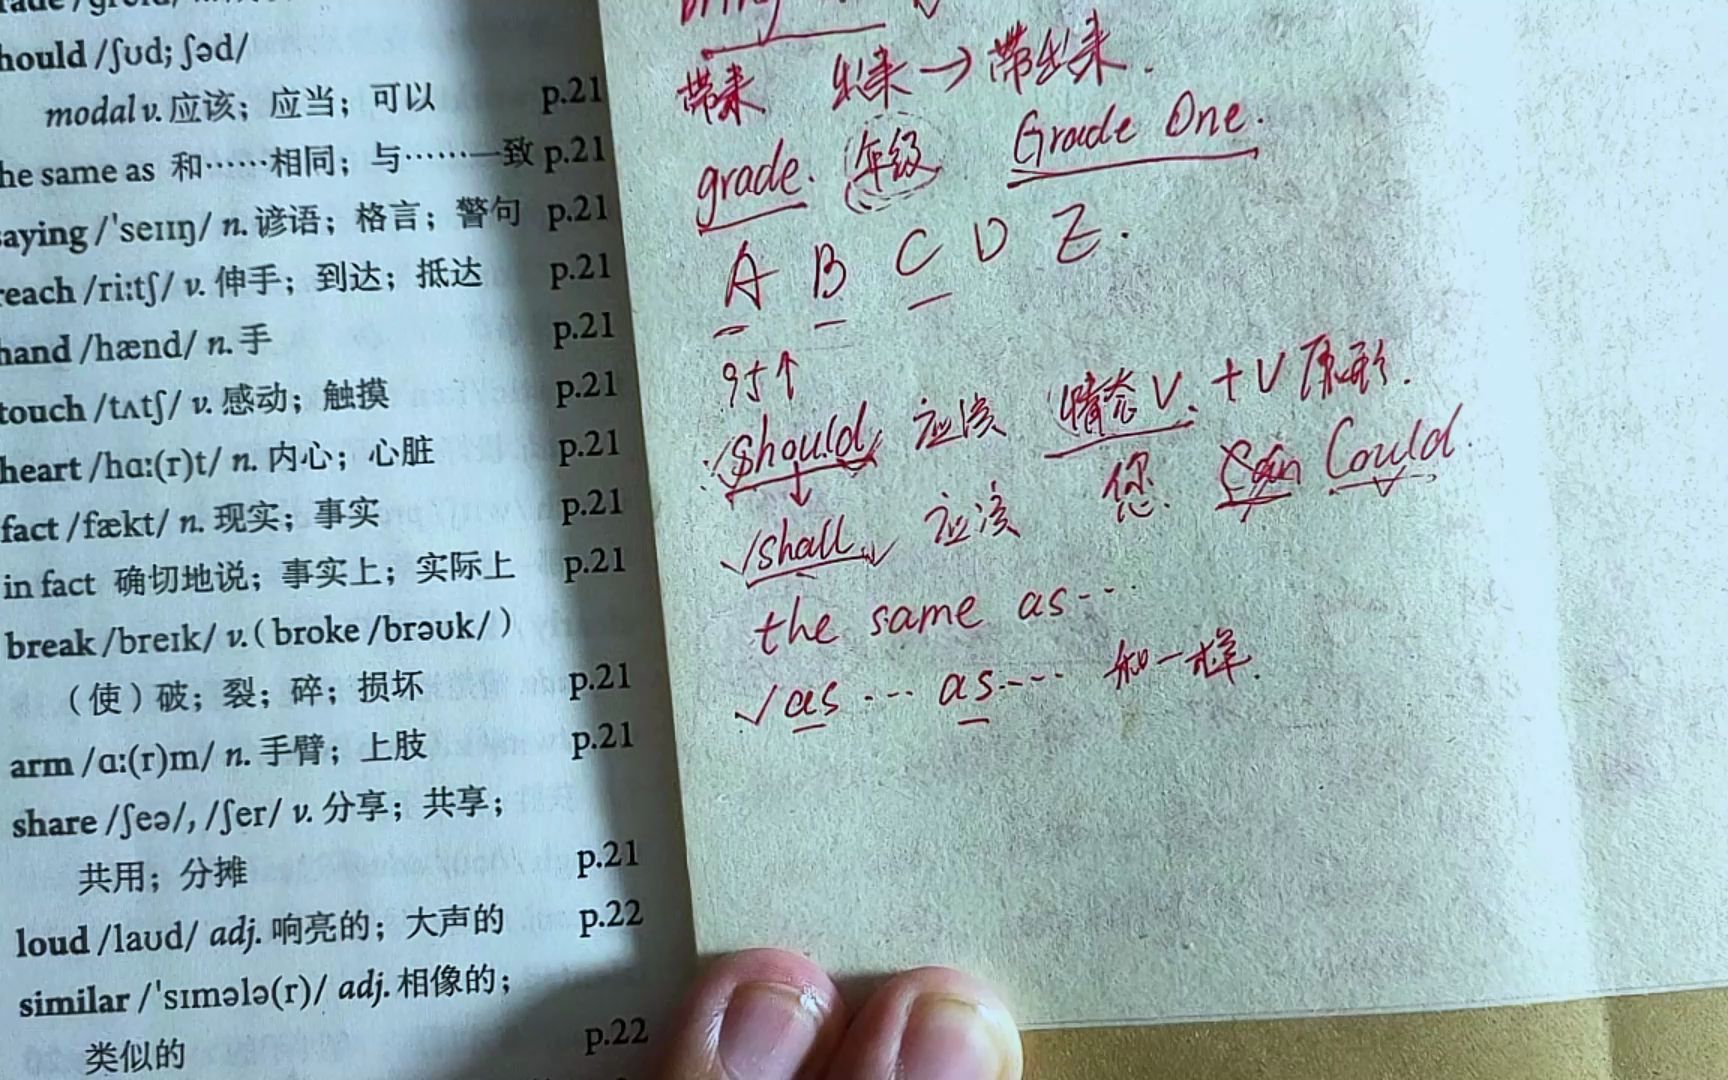 hould /ʃʊd; ʃəd/
modal v. 应该；应当；可以 p.21
he same as 和……相同；与……一致 p.21
saying /ˈseɪɪŋ/ n. 谚语；格言；警句 p.21
reach /riːtʃ/ v. 伸手；到达；抵达 p.21
hand /hænd/ n. 手 p.21
touch /tʌtʃ/ v. 感动；触摸 p.21
heart /hɑː(r)t/ n. 内心；心脏 p.21
fact /fækt/ n. 现实；事实 p.21
in fact 确切地说；事实上；实际上 p.21
break /breɪk/ v. ( broke /brəʊk/ )
（使）破；裂；碎；损坏 p.21
arm /ɑː(r)m/ n. 手臂；上肢 p.21
share /ʃeə/, /ʃer/ v. 分享；共享；
共用；分摊 p.21
loud /laʊd/ adj. 响亮的；大声的 p.22
similar /ˈsɪmələ(r)/ adj. 相像的；
类似的 p.22
带来 出来→带出来.
grade. 年级 Grade One.
A B C D E.
95↑
should 应该 情态V. +V原形.
↓
shall 应该 您. Can Could.
the same as…
√as … as…. 和一样.